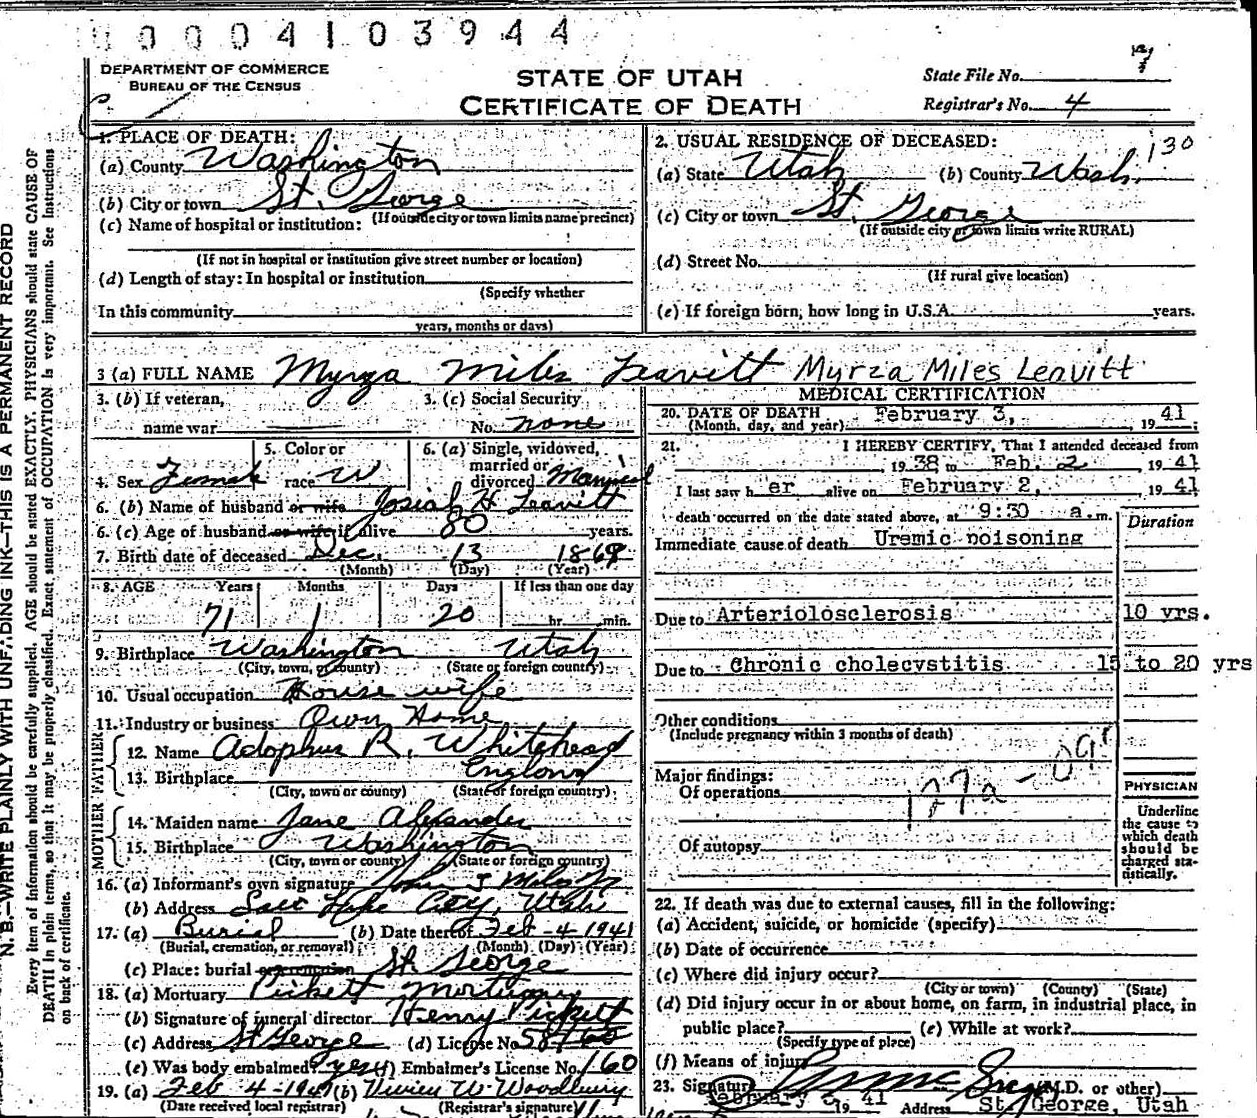 0004103944
DEPARTMENT OF COMMERCE
BUREAU OF THE CENSUS
STATE OF UTAH
CERTIFICATE OF DEATH
State File No. 7
Registrar's No. 4
N. B.—WRITE PLAINLY WITH UNFADING INK—THIS IS A PERMANENT RECORD
Every item of information should be carefully supplied. AGE should be stated EXACTLY. PHYSICIANS should state CAUSE OF
DEATH in plain terms, so that it may be properly classified. Exact statement of OCCUPATION is very important. See Instructions
on back of certificate.
1. PLACE OF DEATH:
(a) County Washington
(b) City or town St. George
(If outside city or town limits name precinct)
(c) Name of hospital or institution:
(If not in hospital or institution give street number or location)
(d) Length of stay: In hospital or institution
(Specify whether
In this community
years, months or days)
2. USUAL RESIDENCE OF DECEASED: 130
(a) State Utah (b) County Wash.
(c) City or town St. George
(If outside city or town limits write RURAL)
(d) Street No.
(If rural give location)
(e) If foreign born, how long in U.S.A. years.
3 (a) FULL NAME Myrza Miles Leavitt Myrza Miles Leavitt
3. (b) If veteran, 3. (c) Social Security
name war No. none
4. Sex Female 5. Color or race W 6. (a) Single, widowed, married or divorced Married
6. (b) Name of husband or wife Josiah H Leavitt
6. (c) Age of husband or wife if alive 80 years.
7. Birth date of deceased Dec. 13 1869
(Month) (Day) (Year)
8. AGE Years Months Days If less than one day
71 1 20 hr. min.
9. Birthplace Washington Utah
(City, town, or county) (State or foreign country)
10. Usual occupation House wife
11. Industry or business Own Home
FATHER
12. Name Adophus R. Whitehead
13. Birthplace England
(City, town or county) (State of foreign country)
MOTHER
14. Maiden name Jane Alexander
15. Birthplace Washington
(City, town or county) (State or foreign country)
16. (a) Informant's own signature John S Miles Jr
(b) Address Salt Lake City, Utah
17. (a) Burial (b) Date thereof Feb-4-1941
(Burial, cremation, or removal) (Month) (Day) (Year)
(c) Place: burial or cremation St. George
18. (a) Mortuary Pickett Mortuary
(b) Signature of funeral director Henry Pickett
(c) Address St George (d) License No.
(e) Was body embalmed? yes (f) Embalmer's License No. 160
19. (a) Feb-4-1941 (b) Vivian W. Woodbury
(Date received local registrar) (Registrar's signature)
MEDICAL CERTIFICATION
20. DATE OF DEATH February 3, 1941
(Month, day, and year)
21. I HEREBY CERTIFY, That I attended deceased from
1938 to Feb. 2, 1941
I last saw her alive on February 2, 1941
death occurred on the date stated above, at 9:30 a.m.
Duration
Immediate cause of death Uremic poisoning
Due to Arteriolosclerosis 10 yrs.
Due to Chronic cholecystitis 15 to 20 yrs
Other conditions
(Include pregnancy within 3 months of death)
Major findings:
Of operations 127a-09
Of autopsy
PHYSICIAN
Underline
the cause to
which death
should be
charged sta-
tistically.
22. If death was due to external causes, fill in the following:
(a) Accident, suicide, or homicide (specify)
(b) Date of occurrence
(c) Where did injury occur?
(City or town) (County) (State)
(d) Did injury occur in or about home, on farm, in industrial place, in
public place? (e) While at work?
(Specify type of place)
(f) Means of injury
23. Signature (M.D. or other)
February 1941 Address St. George, Utah